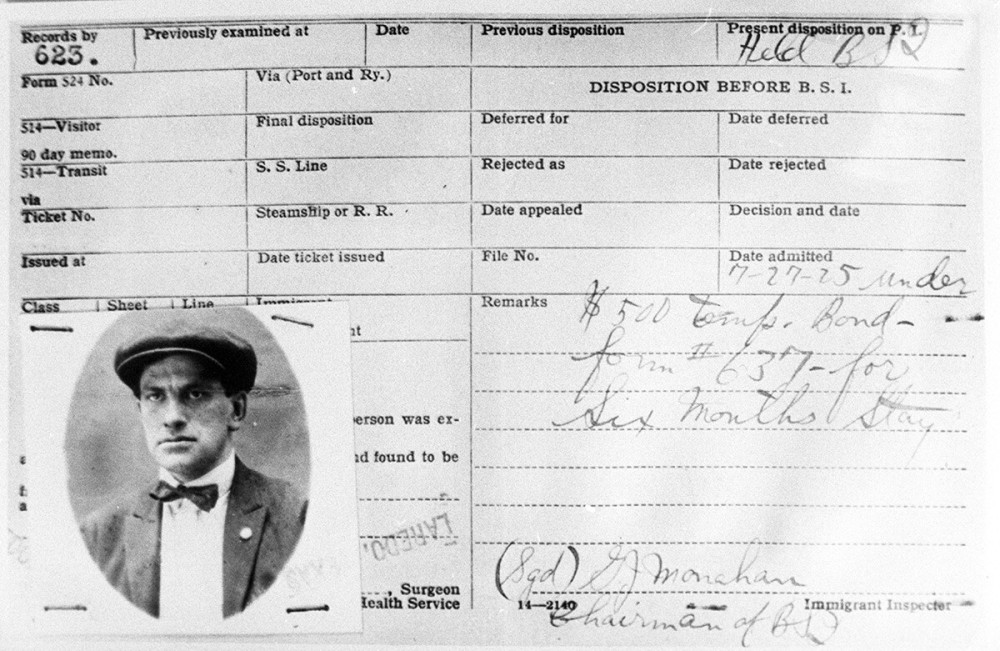 Records by Previously examined at Date Previous disposition Present disposition on P. I.
623. Held BSI
Form 524 No. Via (Port and Ry.) DISPOSITION BEFORE B. S. I.
514—Visitor Final disposition Deferred for Date deferred
90 day memo.
514—Transit S. S. Line Rejected as Date rejected
via
Ticket No. Steamship or R. R. Date appealed Decision and date
Issued at Date ticket issued File No. Date admitted
7-27-25 under
Class Sheet Line Immigrant Remarks
$500 temp. Bond-
form # 637- for
Six Months Stay
person was ex-
nd found to be
LAREDO,
(Sgd) GJ Monahan
, Surgeon
Health Service 14—2140 Immigrant Inspector
Chairman of BSI